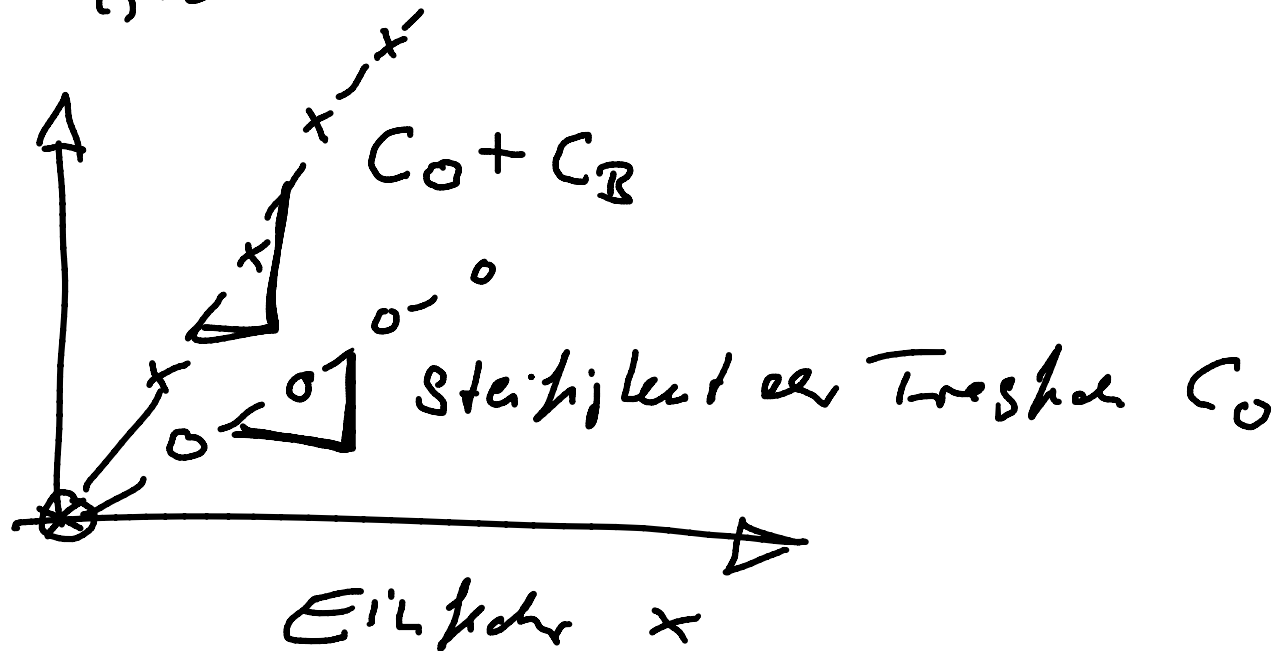 C₀ + C_B
Steifigkeit der Tragfeder C₀
Einfeder x